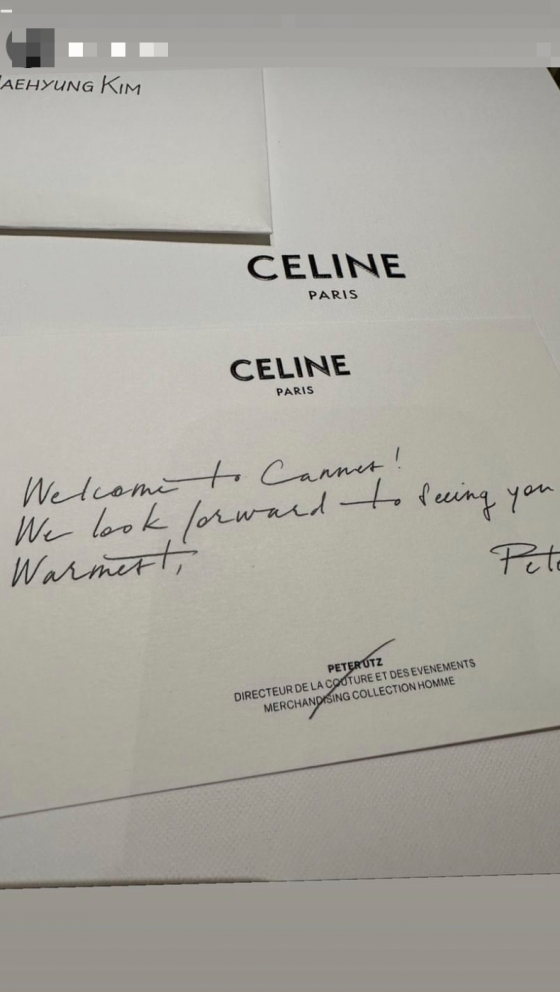 AEHYUNG KIM
CELINE
PARIS
CELINE
PARIS
Welcome to Cannes!
We look forward to seeing you
Warmest,
Pete
PETER UTZ
DIRECTEUR DE LA COUTURE ET DES EVENEMENTS
MERCHANDISING COLLECTION HOMME